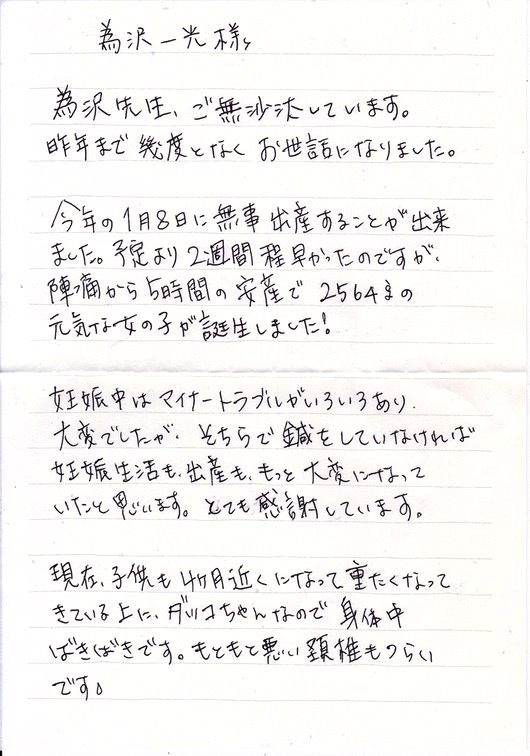 為沢一光様
為沢先生、ご無沙汰しています。
昨年まで幾度となくお世話になりました。
今年の1月8日に無事出産することが出来
ました。予定より2週間程早かったのですが、
陣痛から5時間の安産で2564gの
元気な女の子が誕生しました!
妊娠中はマイナートラブルがいろいろあり、
大変でしたが、そちらで鍼をしていなければ
妊娠生活も、出産も、もっと大変になって
いたと思います。とても感謝しています。
現在、子供も4ヶ月近くになって重たくなって
きている上に、ダッコちゃんなので身体中
ばきばきです。もともと悪い頚椎もつらい
です。